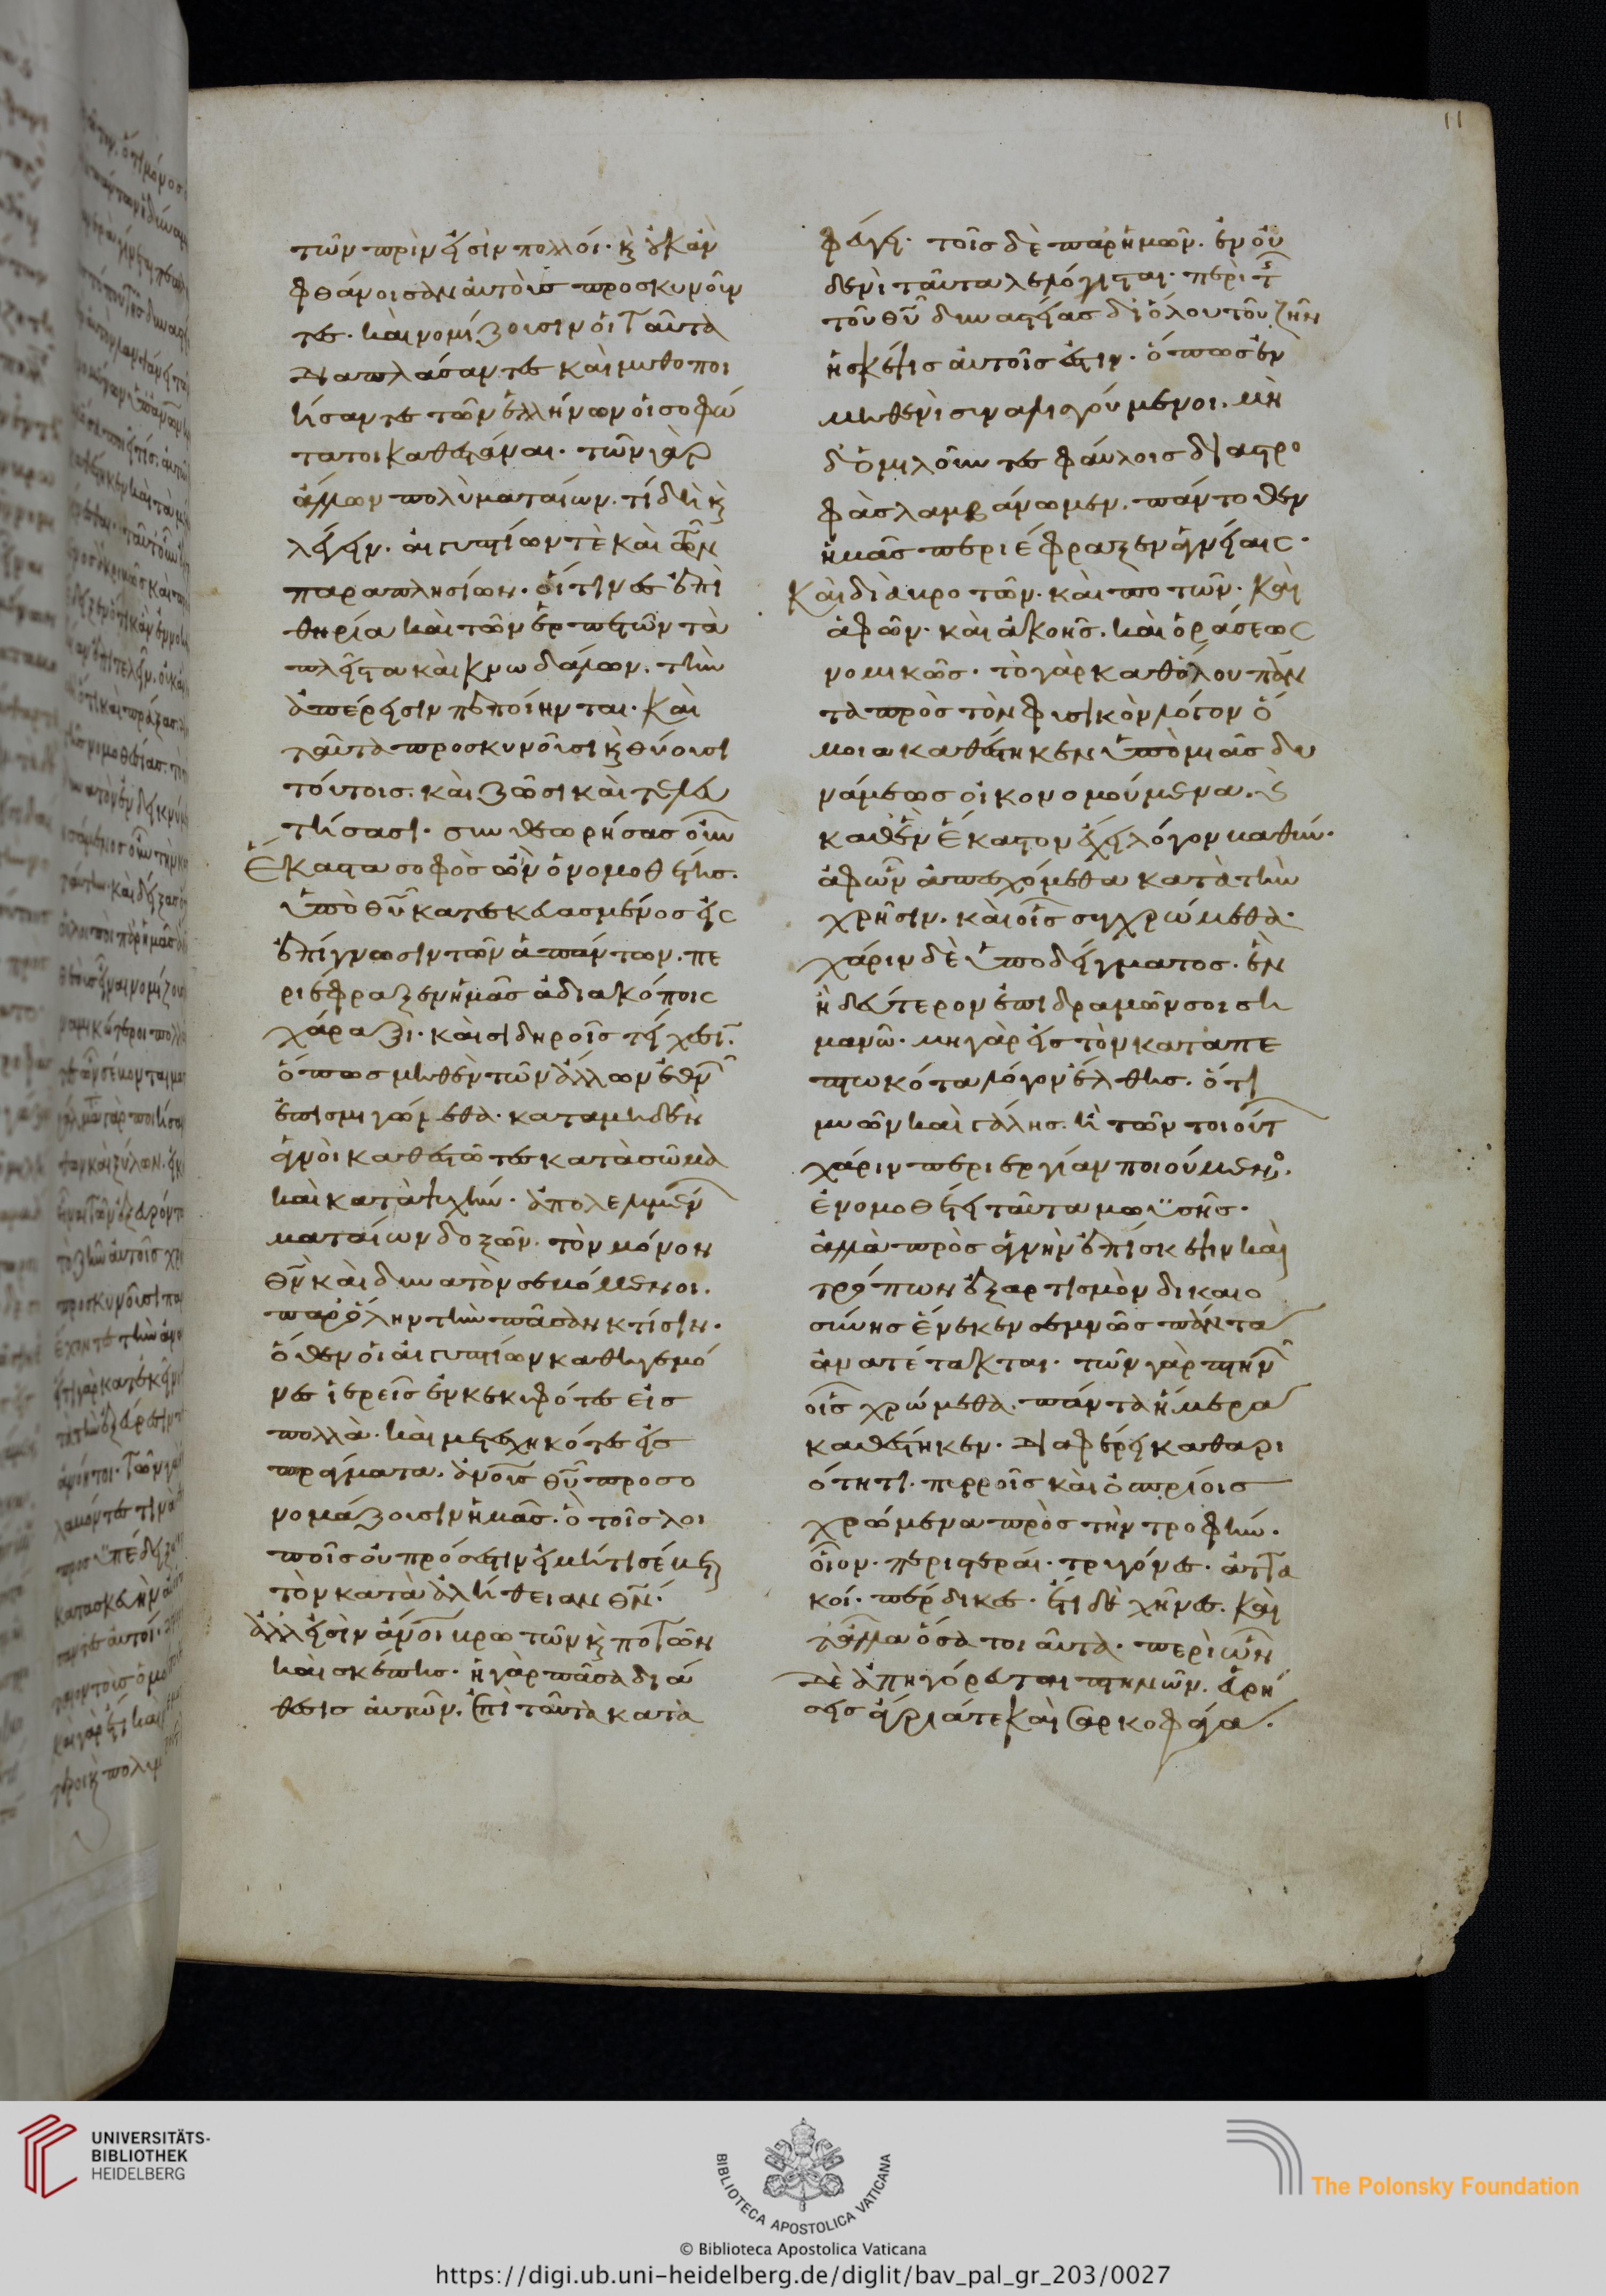 τῶν πρὶν εἰσὶν πολλοί· κ̀ οὐκ ἂν
φθάνοισαν αὐτοὺς προσκυνοῦν
τες· καὶ νομίζουσιν οἱ ταῦτα
διαπλάσαντες καὶ μυθοποι
ήσαντες τῶν ἑλλήνων οἱ σοφώ
τατοι καθεστάναι· τῶν γὰρ
ἄλλων πολυματαίων· τί δεῖ κ̀
λέγειν· αἰγυπτίων τὲ καὶ τῶν
παραπλησίων· οἵτινες ἐπὶ
θηρία καὶ τῶν ἑρπετῶν τὰ
πλεῖστα καὶ κνωδάλων· τὴν
ἀπέρεισιν πεποίηνται· καὶ
ταῦτα προσκυνοῦσι κ̀ θύουσι
τούτοις· καὶ ζῶσι καὶ τελευ
τήσασι· συνθεωρήσας οὖν
ἕκαστα σοφὸς ὢν ὁ νομοθέτης·
ὑπὸ θῦ κατεσκευασμένος εἰς
ἐπίγνωσιν τῶν ἁπάντων· πε
ριέφραξεν ἡμᾶς ἀδιακόποις
χάραξι· καὶ σιδηροῖς τείχεσι·
ὅπως μηθὲν τῶν ἄλλων ἐθν
ἐπισμιγώμεθα· κατα μηδὲν
ἁγνοὶ καθεστῶτες κατὰ σῶμα
καὶ κατὰ ψυχήν· ἀπολελυμέν
ματαίων δοξῶν· τὸν μόνον
θν̄ καὶ δυνατὸν σεβόμενοι·
παρ' ὅλην τὴν πᾶσαν κτίσιν·
ὅθεν οἱ αἰγυπτίων καθηγεμό
νες ἱερεῖς ἐνκεκυφότες εἰς
πολλὰ· καὶ μετεσχηκότες εἰς
πράγματα· ἀνους θῦ προσο
νομάζουσιν ἡμᾶς· ὃ τοῖς λοι
ποῖς οὐ πρόσεστιν εἰ μή τι σέβεται
τὸν κατὰ ἀλήθειαν θν̄·
ἀλλ' εἰσὶν ἄνοι βρωτῶν κ̀ ποτῶν
καὶ σκέπης· ἡ γὰρ πᾶσα διά
θεσις αὐτῶν· ἐπὶ ταῦτα κατα
φεύγει· τοῖς δὲ παρ' ἡμῶν· ἐν οὐ
δενὶ ταῦτα λελόγισται· περὶ τ
τοῦ θῦ δυναστείας δι' ὅλου τοῦ ζῆν
ἡ σκέψις αὐτοῖς ἐστιν· ὅπως ἐν
μηθενὶ συναλισγούμενοι· μη
δ' ὁμιλοῦντες φαύλοις διαστρο
φὰς λαμβάνωμεν· πάντοθεν
ἡμᾶς περιέφραξεν ἁγνείαις·
καὶ διὰ βρωτῶν· καὶ ποτῶν· καὶ
ἁφῶν· καὶ ἀκοῆς· καὶ ὁράσεως
νομικῶς· τὸ γὰρ καθόλου πάν
τα πρὸς τὸν φυσικὸν λόγον ὅ
μοια καθέστηκεν ὑπὸ μιᾶς δυ
νάμεως οἰκονομούμενα· κ̀
καθ' ἓν ἕκαστον ἔχει λόγον βαθύν·
ἀφ' ὧν ἀπεχόμεθα κατὰ τὴν
χρῆσιν· καὶ οἷς συγχρώμεθα·
χάριν δὲ ὑποδείγματος· ἓν
ἢ δεύτερον ἐπιδραμῶν σοι ση
μανῶ· μὴ γὰρ εἰς τὸν καταπε
πτωκότα λόγον ἔλθης· ὅτι
μυῶν καὶ γαλῆς· ἢ τῶν τοιούτ
χάριν περιεργίαν ποιούμενο·
ἐνομοθέτει ταῦτα μωϋσῆς·
ἀλλὰ πρὸς ἁγνὴν ἐπίσκεψιν καὶ
τρόπων ἐξαρτισμὸν δικαιο
σύνης ἕνεκεν σεμνῶς πάντα
ἀνατέτακται· τῶν γὰρ πτην
οἷς χρώμεθα· πάντα ἥμερα
καθέστηκεν· διαφέρει καθαρι
ότητι· πυρροῖς καὶ ὀσπρίοις
χρώμενα πρὸς τὴν τροφήν·
οἷον· περιστεραί· τρυγόνες· ἀττα
κοί· πέρδικες· ἔτι δὲ χῆνες· καὶ
τἆλλα ὅσα τοιαῦτα· περὶ ὧν
δὲ ἀπηγόρευται πτηνῶν· εὑρή
σεις ἄγριά τε καὶ σαρκοφάγα·
11
UNIVERSITÄTS-
BIBLIOTHEK
HEIDELBERG
BIBLIOTECA APOSTOLICA VATICANA
The Polonsky Foundation
© Biblioteca Apostolica Vaticana
https://digi.ub.uni-heidelberg.de/diglit/bav_pal_gr_203/0027